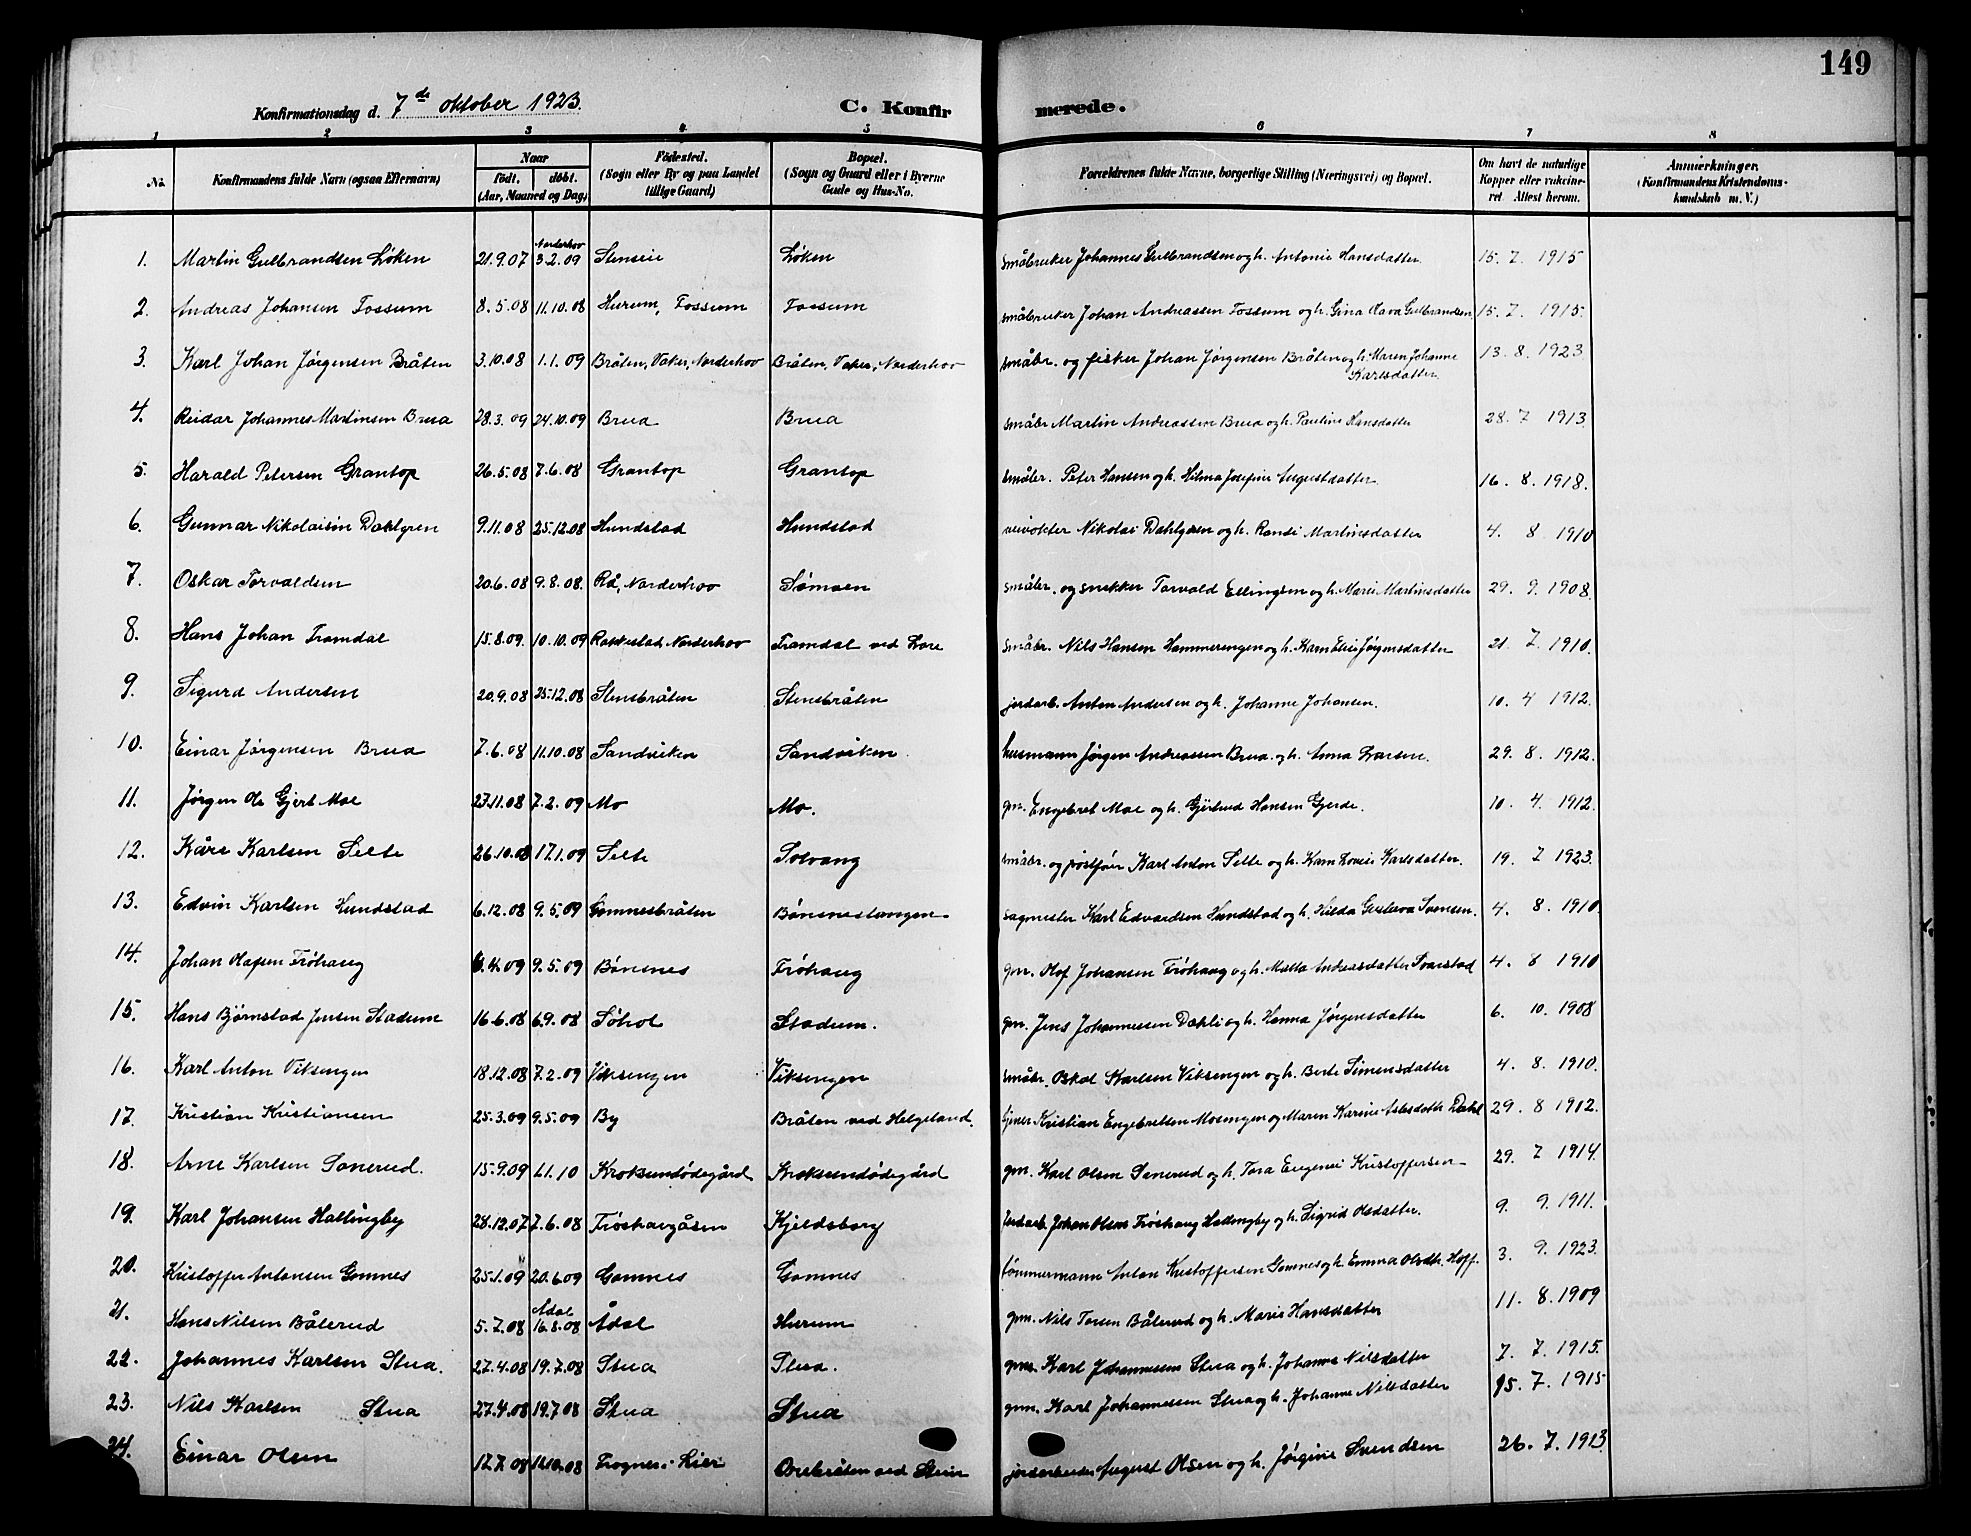 149
Konfirmationsdag d. 7de oktober 1923. C. Konfirmerede.
1 2 3 4 5 6 7 8
No. Konfirmandens fulde Navn (ogsaa Efternavn) Naar født. døbt. (Aar, Maaned og Dag) Fødested. (Sogn eller By og paa Landet tillige Gaard) Bopæl. (Sogn og Gaard eller i Byerne Gade og Hus-No. Forældrenes fulde Navne, borgerlige Stilling (Næringsvei) og Bopæl. Om havt de naturlige Kopper eller vakcineret. Attest herom. Anmærkninger. (Konfirmandens Kristendomskundskab m. V.)
1. Martin Gulbrandsen Løken 21.9.07 Norderhov 3.2.09 Stenseie Løken småbruker Johannes Gulbrandsen og h. Antonie Hansdatter 15. 7. 1915
2. Andreas Johansen Fossum 8.5.08 11.10.08 Hurum, Fossum Fossum småbruker Johan Andreassen Fossum og h. Gina Olava Gulbrandsen 15. 7. 1915.
3. Karl Johan Jørgensen Bråten 3.10.08 1.1.09 Bråten, Vaker, Norderhov Bråten, Vaker, Norderhov småbr. og fisker Johan Jørgensen Bråten og h. Maren Johanne Karlsdatter 13. 8. 1923
4. Reidar Johannes Martinsen Brua 28.3.09 24.10.09 Brua Brua småbr Martin Andreassen Brua og h. Pauline Hansdatter 28. 7 1913
5. Harald Petersen Grantop 26.5.08 7.6.08 Grantop Grantop småbr. Peter Hansen og h. Hilma Josefine Augustdatter 16. 8. 1918.
6. Gunnar Nikolaisen Dahlgren 9.11.08 25.12.08 Hundstad Hundstad veivokter Nikolai Dahlgren og h. Randi Martinsdatter 4. 8 1910
7. Oskar Torvaldsen 20.6.08 9.8.08. Rå, Norderhov Sømoen småbr. og snekker Torvald Ellingsen og h. Marie Martinsdatter 29. 9. 1908.
8. Hans Johan Framdal 15.8.09. 10.10.09 Rakkestad Norderhov Framdal ved Lore småbr. Nils Hansen Hammerengen og h. Karn Elise Jørgensdatter 21 7. 1910.
9. Sigurd Andersen 20.9.08 25.12.08 Stensbråten Stensbråten jordarb. Anton Andersen og h. Johanne Johansen. 10. 4 1912.
10. Einar Jørgensen Brua 7.6.08 11.10.08 Sandviken Sandviken husmann Jørgen Andreassen Brua og h. Anna Larsen. 29. 8. 1912.
11. Jørgen Ole Gjert Moe 27.11.08 7.2.09 Mo Mo. gm. Engebret Moe og h. Gjertrud Hansen Gjerde. 10. 4. 1912.
12. Kåre Karlsen Selte 26.10.08 17.1.09 Selte Solvang småbr. og postfører Karl Anton Selte og h. Karn Lovise Karlsdatter. 19. 7 1923.
13. Edvin Karlsen Hundstad 6.12.08 9.5.09 Gomnesbråten Bønsnestangen sagmester Karl Edvardsen Hundstad og h. Hilda Gustava Svensen. 4. 8. 1910.
14. Johan Olafsen Frøhaug 4.4.09 9.5.09 Bønsnes Frøhaug gm. Olaf Johansen Frøhaug og h. Matta Andreasdatter Svarstad 4. 8 1910
15. Hans Bjørnstad Jensen Stadum 16.6.08 6.9.08 Søhol Stadum. gm. Jens Johannessen Dæhli og h. Hanna Jørgensdatter 6. 10. 1908
16. Karl Anton Viksengen 18.12.08 7.2.09 Viksengen Viksengen småbr. Oskal Karlsen Viksengen og h. Berte Simensdatter 4. 8. 1910.
17. Kristian Kristiansen 25.3.09 9.5.09 By Bråten ved Helgeland. Kristian Engebretsen Mosengen og Maren Karine Aslesdatt. Dahl 29. 8 1912.
18. Arne Karlsen Sonerud. 15.9.09 1.1.10 Kroksundødegård Kroksundødegård gm. Karl Olsen Sonerud og h. Tora Eugenie Kristoffersen 29. 7 1914.
19. Karl Johansen Hallingby 28.12.07 7.6.08 Frøshaugåsen Kjeldsberg jordarb. Johan Olsen Frøshaug Hallingby og h. Sigrid Olsdatter. 9. 9. 1911.
20. Kristoffer Antonsen Gomnes 25.1.09 20.6.09 Gomnes Gomnes tømmermann Anton Kristoffersen Gomnes og h. Emma Olsdtr. Hoff. 3. 9. 1923.
21. Hans Nilsen Bålerud 5.7.08 Ådal 16.8.08 Ådal Hurum gm. Nils Torsen Bålerud og h. Marie Hansdatter 11. 8. 1909
22. Johannes Karlsen Stua. 27.4.08 19.7.08 Stua Stua. gm. Karl Johannessen Stua og h. Johanne Nilsdatter 7. 7. 1915.
23. Nils Karlsen Stua 27.4.08 19.7.08 Stua Stua gm. Karl Johannessen Stua og h. Johanne Nilsdatter 15. 7. 1915
24. Einar Olsen 17.7.08 11.10.08 Frogner i Lier Ovebråten ved Stein jordarbeider August Olsen og h. Jørgine Svendsen 26. 7. 1913